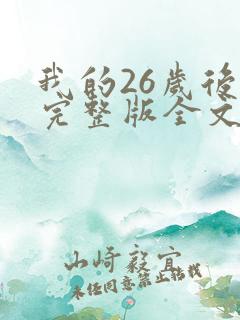 我的26岁后
完整版全文
山崎毅宜
未经同意禁止转载